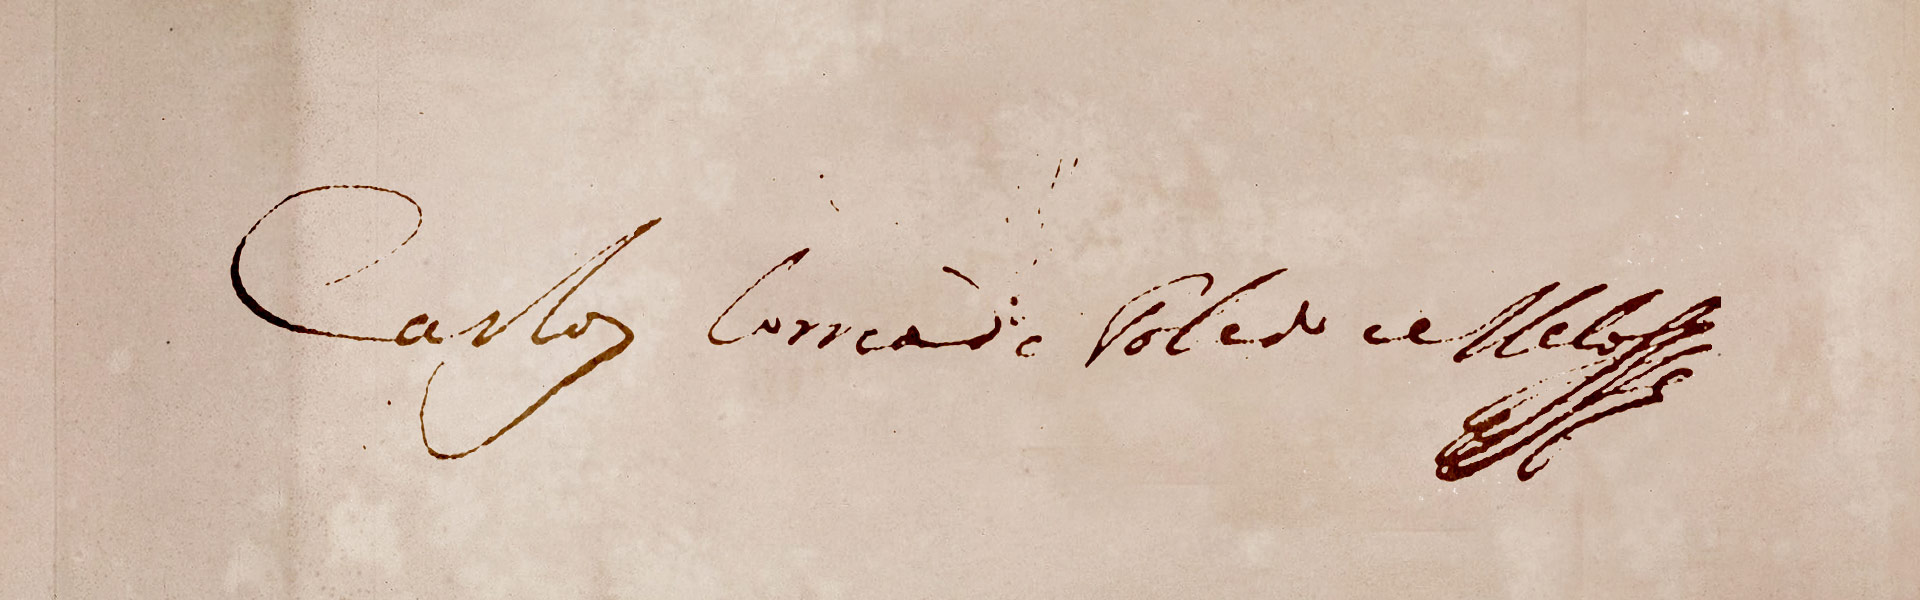 Carlos Correa de Toledo e Mello